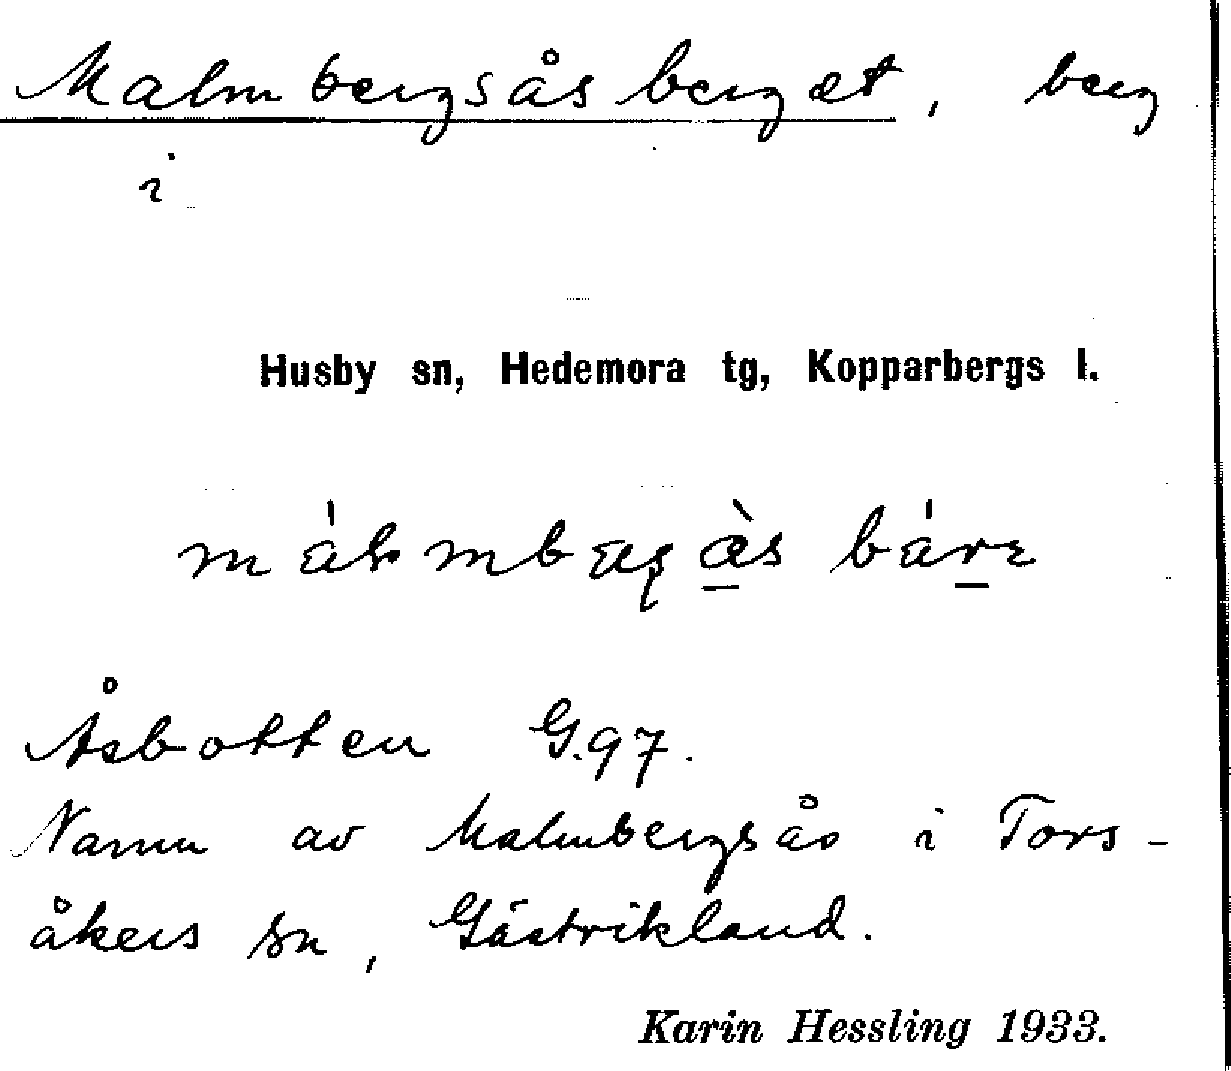 Malmbergsåsberget, berg
i
Husby sn, Hedemora tg, Kopparbergs l.
Åsbotten G.97.
Namn av Malmbergsås i Tors-
åkers sn, Gästrikland.
Karin Hessling 1933.